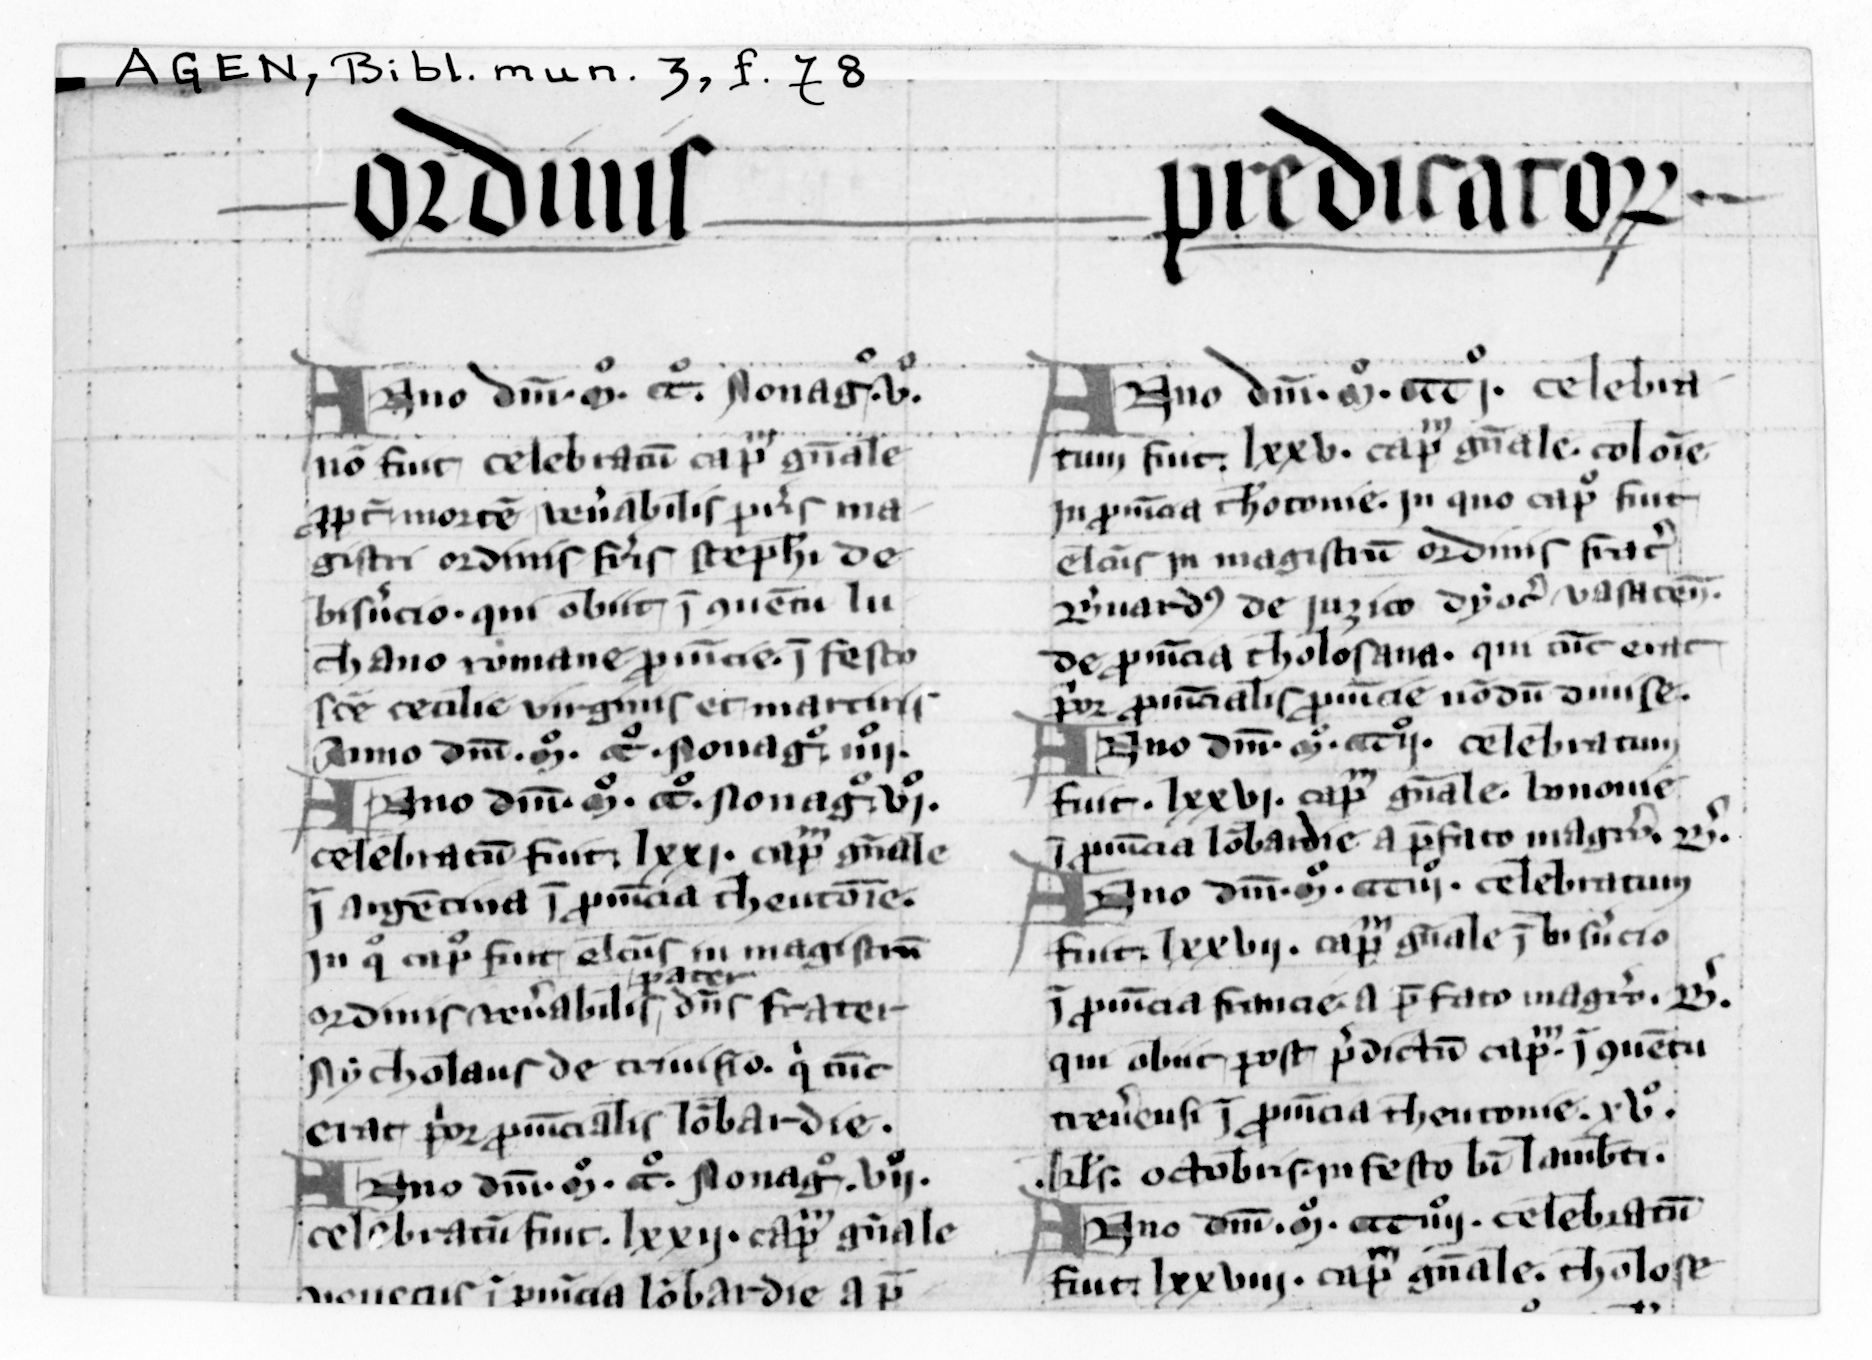 AGEN, Bibl. mun. 3, f. 78
ordinis
predicatoꝝ
Anno dnī. mͦ. ccͦ. Nonagͦ. vͦ.
nō fuit celebratū capᵐ gn̄ale
ꝓpt̄ mortē ven̄abilis pr̄is ma
gistri ordinis fr̄is steph̄i de
bisūcio. qui obiit ī ꝯuētu lu
chano romane ꝓuīcie. ī festo
sc̄e cecilie virginis et martiris
Anno dnī. mͦ. ccͦ. Nonagͦ. iiiiͦ.
Anno dnī. mͦ. ccͦ. Nonagͦ. vjͦ.
celebratū fuit. lxxj. capᵐ gn̄ale
ī argētina ī ꝓuīcia theutōie.
In qͦ capͦ fuit elc̄us in magistrū
pater
ordinis ven̄abilis dn̄s frater
Nycholaus de triuisio. qⁱ tūc
erat pⁱor ꝓuīcialis lōbardie.
Anno dnī. mͦ. ccͦ. Nonagͦ. vijͦ.
celebratū fuit. lxxij. capᵐ gn̄ale
venecijs ī ꝓuīcia lōbardie a p̄
Anno dnī. mͦ. cccjͦ. celebra
tum fuit. lxxv. capᵐ gn̄ale. colōie
in ꝓuīcia thotonie. In quo capͦ fuit
elc̄us in magistrū ordinis frat̄
B̄nardꝰ de juzico dyoc̄ vasaten̄.
de ꝓuīcia tholosana. qui tūc erat
pⁱor ꝓuīcialis ꝓuīcie nōdū diuise.
Anno dnī. mͦ. cccijͦ. celebratum
fuit. lxxvj. capᵐ gn̄ale. bononie
ī ꝓuīcia lōbardie a p̄fato magr̄o. B̄.
Anno dnī. mͦ. ccciijͦ. celebratum
fuit. lxxvij. capᵐ gn̄ale ī bisūcio
ī ꝓuīcia francie. a p̄fato magr̄o. B̄.
qui obiit post p̄dictū capᵐ. ī ꝯuētu
trev̄ensi ī ꝓuīcia theutonie. xvͦ.
.kl̄s. octobris. in festo bī lamb̄ti.
Anno dnī. mͦ. ccciiijͦ. celebratū
fuit. lxxviij. capᵐ gn̄ale. tholose